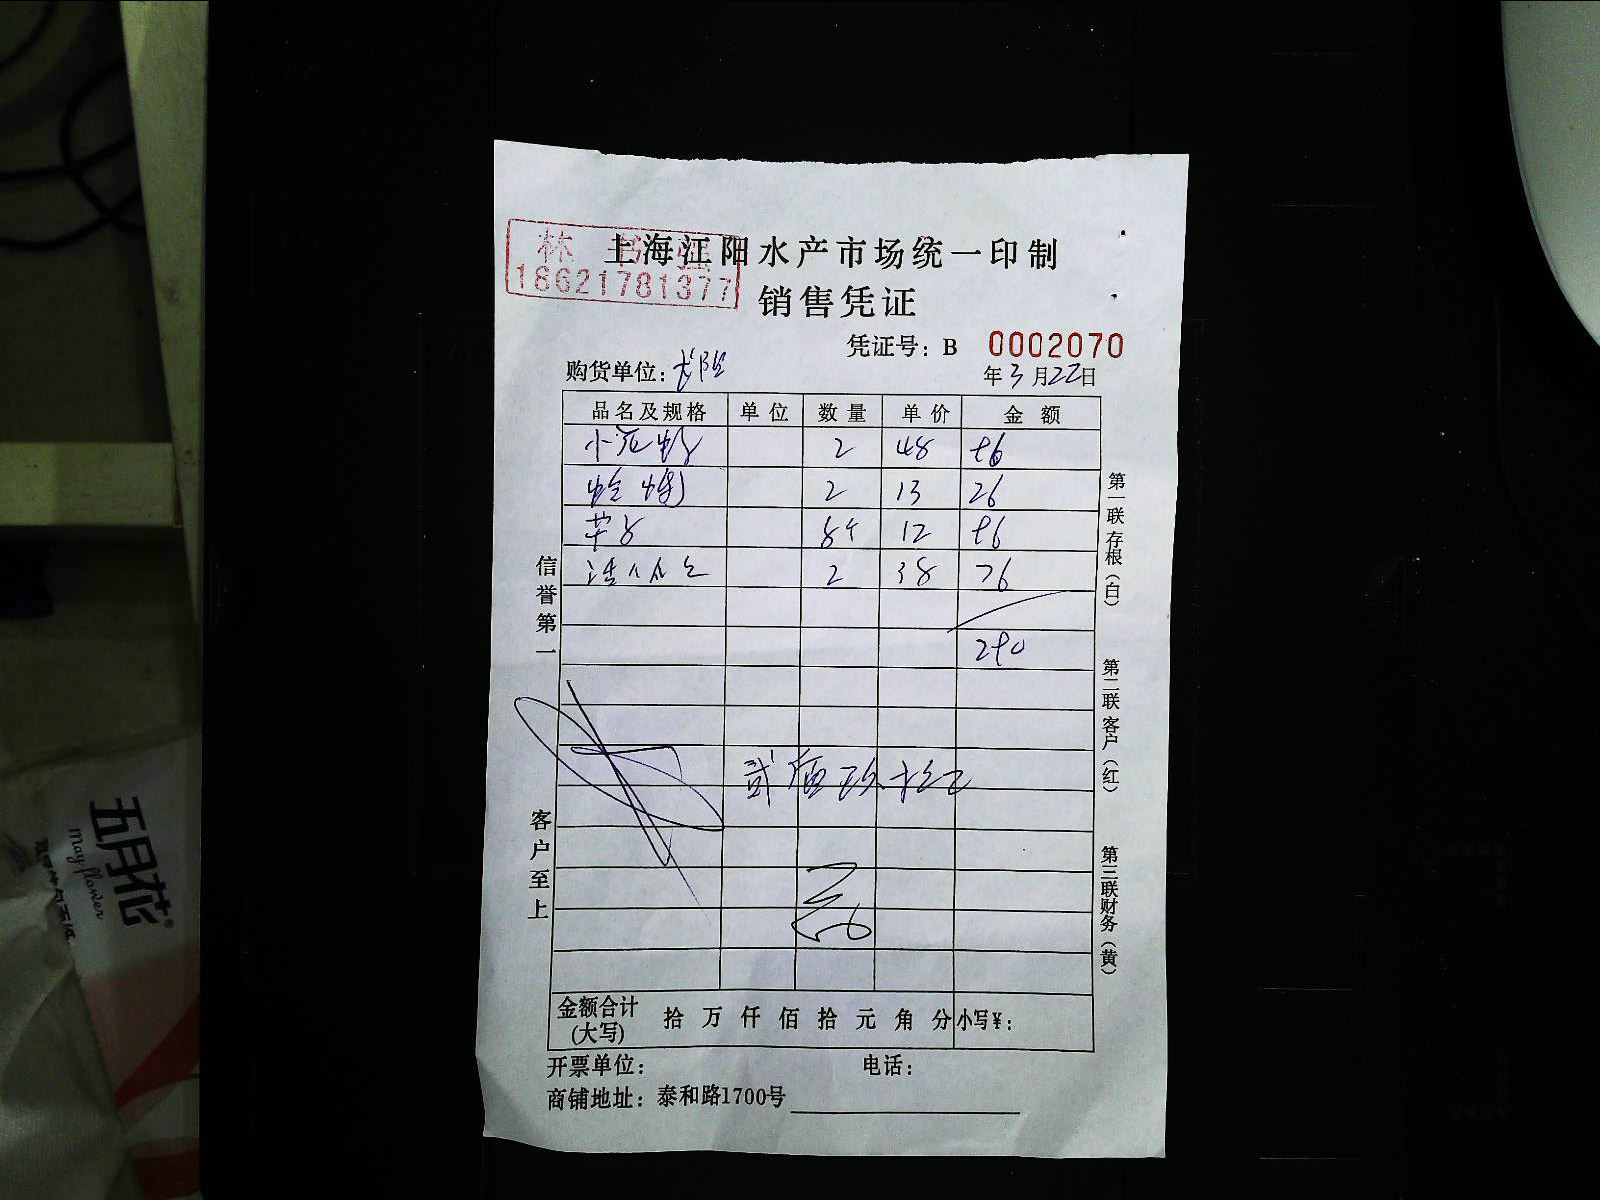 林书强
18621781377
上海江阳水产市场统一印制
销售凭证
凭证号：B 0002070
购货单位：
年3月22日
品名及规格 单位 数量 单价 金额
小河虾 2 48 96
蛤蜊 2 13 26
8个 12 96
2 38 76
290
贰佰玖拾元
金额合计(大写) 拾 万 仟 佰 拾 元 角 分 小写¥：
开票单位： 电话：
商铺地址：泰和路1700号
信誉第一
客户至上
第一联 存根（白）
第二联 客户（红）
第三联 财务（黄）
五月花
May flower